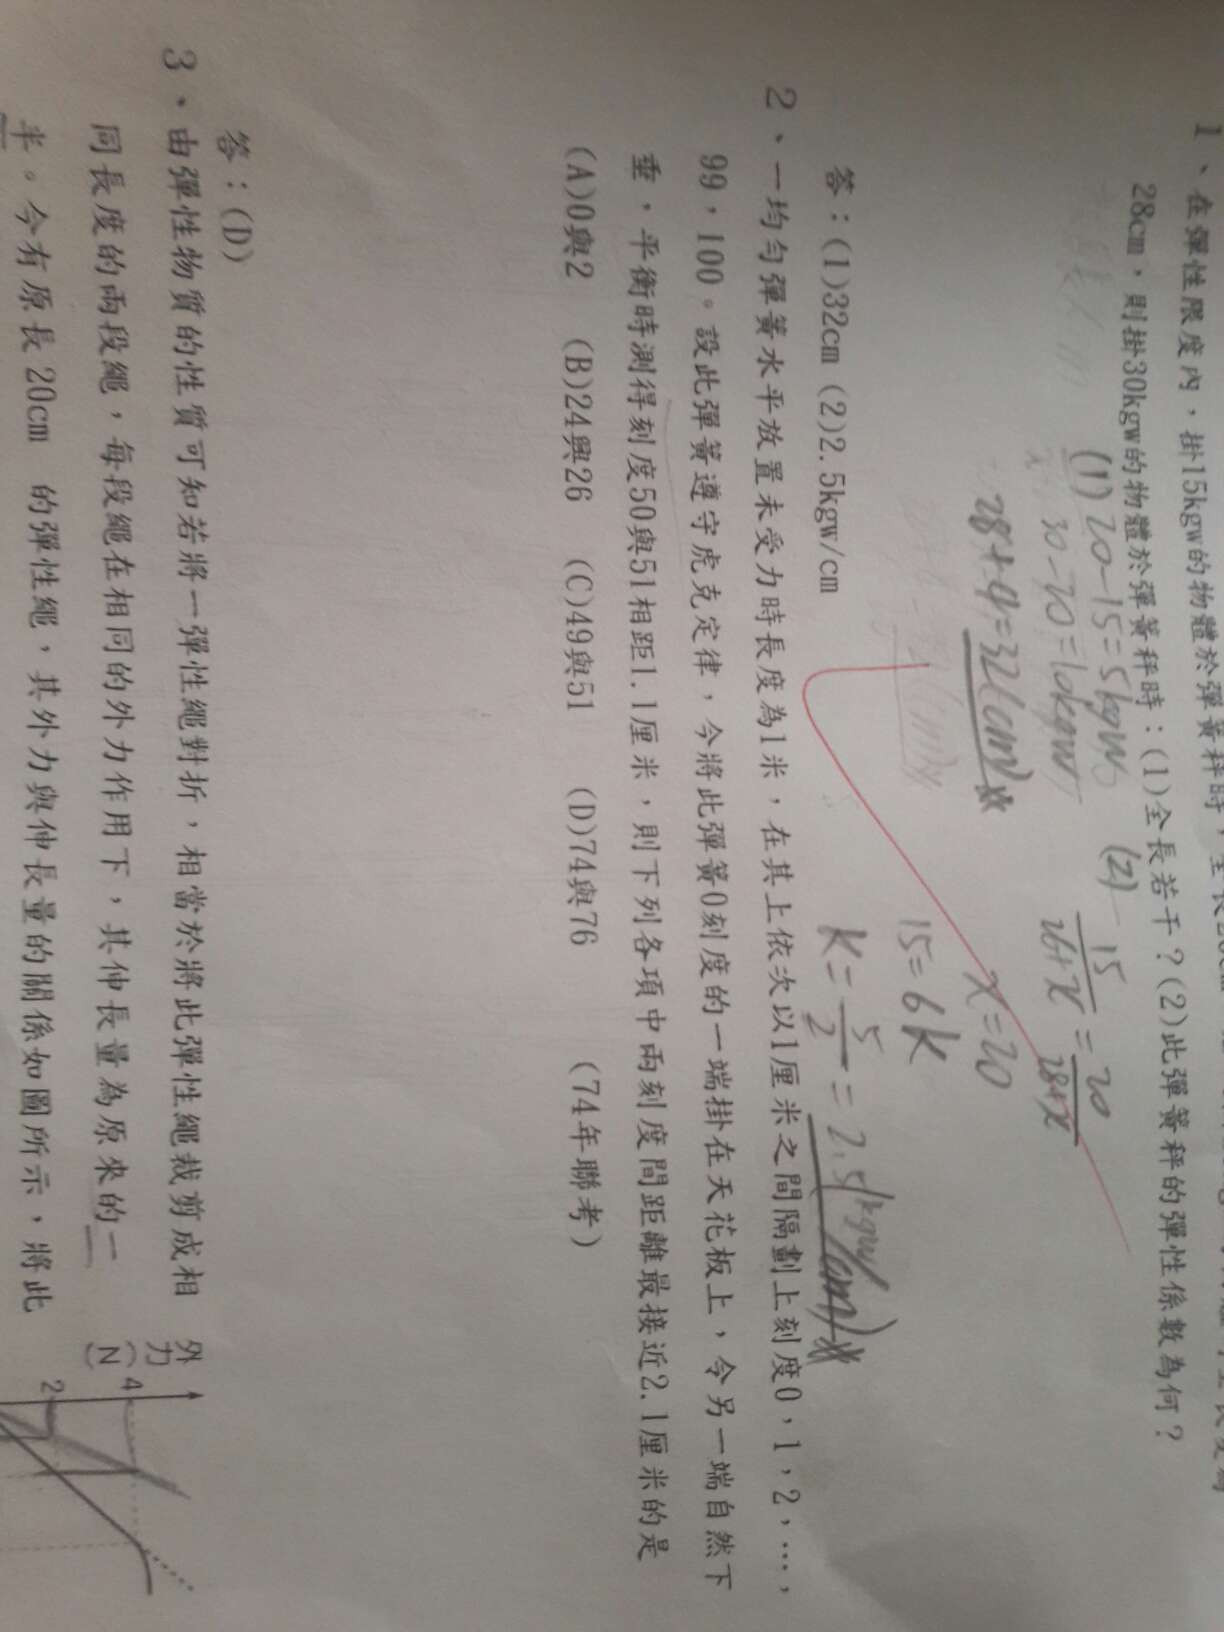 1、在彈性限度內，掛15kgw的物體於彈簧秤時，全長
28cm，則掛30kgw的物體於彈簧秤時：(1)全長若干？(2)此彈簧秤的彈性係數為何？
(1) 20-15=5kgw
30-20=10kgw
28+4=32(cm)
(2) 15/26+x = 20/28+x
x=20
15=6k
k=5/2=2.5(kgw/cm)
答：(1)32cm (2)2.5kgw/cm
2、一均勻彈簧水平放置未受力時長度為1米，在其上依次以1厘米之間隔劃上刻度0，1，2，…，
99，100。設此彈簧遵守虎克定律，今將此彈簧0刻度的一端掛在天花板上，令另一端自然下
垂，平衡時測得刻度50與51相距1.1厘米，則下列各項中兩刻度間距離最接近2.1厘米的是
(A)0與2 (B)24與26 (C)49與51 (D)74與76 (74年聯考)
答：(D)
3、由彈性物質的性質可知若將一彈性繩對折，相當於將此彈性繩裁剪成相
同長度的兩段繩，每段繩在相同的外力作用下，其伸長量為原來的一
半。今有原長20cm 的彈性繩，其外力與伸長量的關係如圖所示，將此
外力(N)
4
2